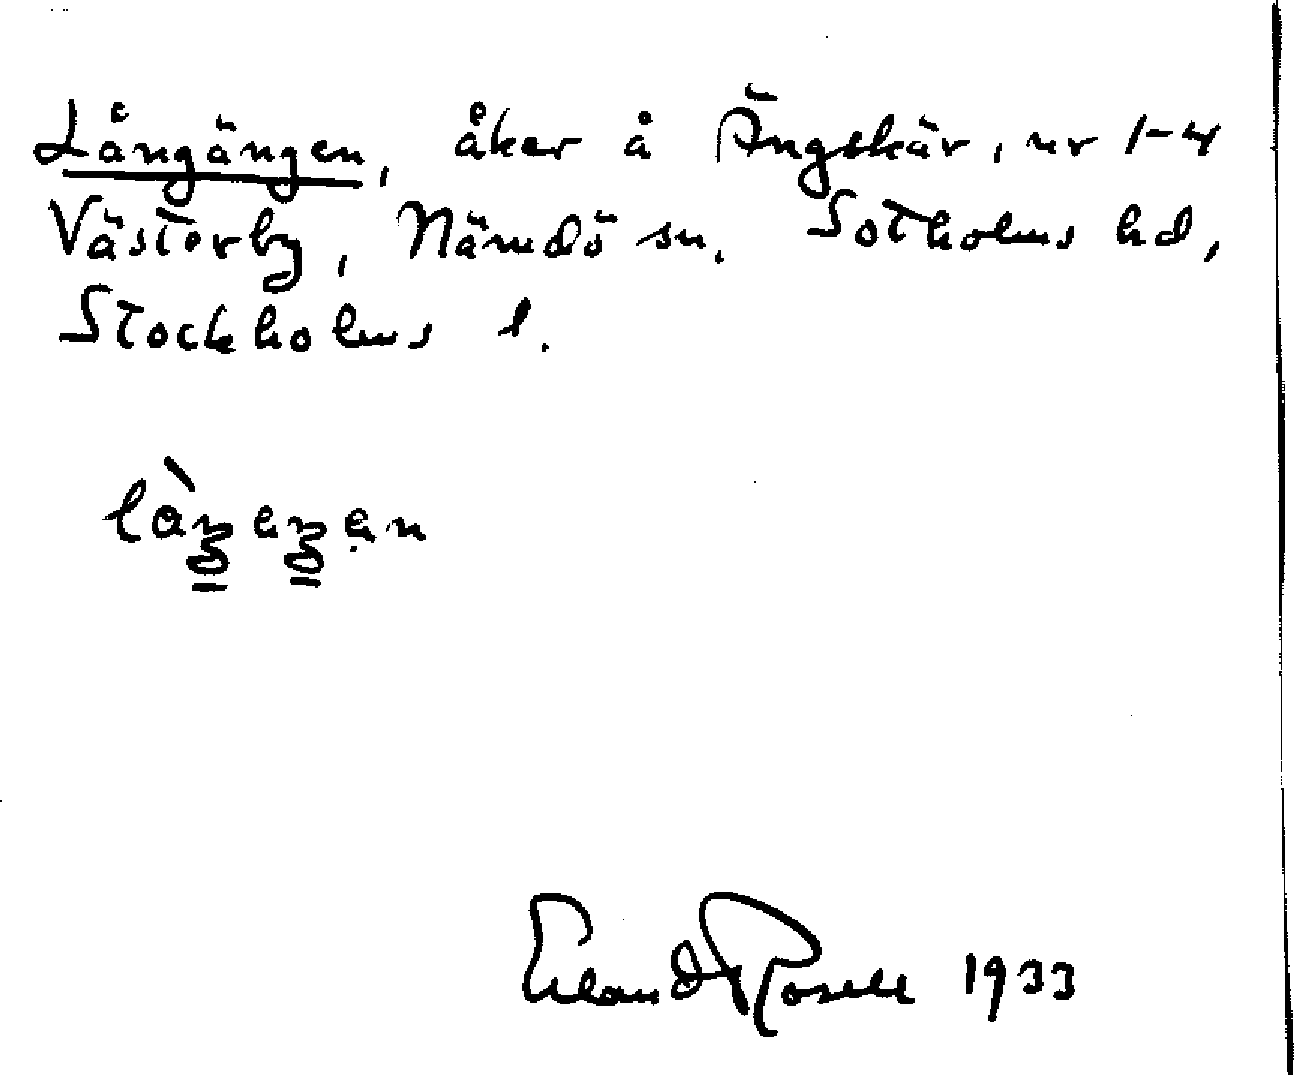 Långängen, åker å Ängskär, nr 1-4
Västerby, Nämdö sn. Sotholms hd,
Stockholms l.
Erland Rosell 1933